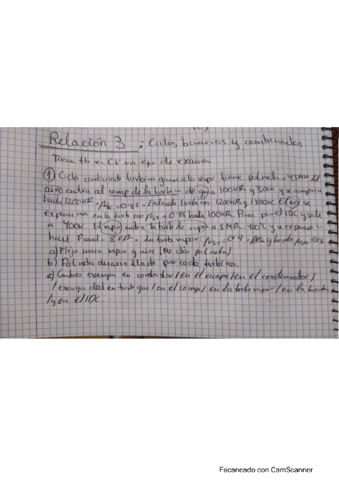 Relación 3 : Ciclos binarios y combinados
Tiene tb en CV un ejer de examen
① Ciclo combinado turbina gas-ciclo vapor tiene potneta = 45MW. El
aire entra al comp de la turbina de gas a 100kPa y 300K y se comprime
hasta 1200kPa, = 0'84. Entrada turbina 1200kPa y 1400K. El gas se
expansiona en la turb con = 0'88 hasta 100kPa. Pasa por el IDC y sale
a 400K. El vapor entra turbina de vapor a 8MPa, 400ºC y se expansiona
hasta Pcond = 8kPa. La turb vapor = 0'9 y bomba = 0'8
a) Flujo masa vapor y aire (Me dan pot neta)
b) Potneta desarrollada por cada turbina
c) Cambio exergía en combustor / en el escape / en el condensador /
/ exergía dest en turb gas / en el comp / en la turb vapor / en la bomba
/ y en el IDC.
Escaneado con CamScanner